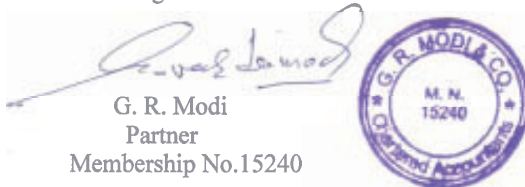 G. R. Modi
Partner
Membership No.15240
G. R. MODI & CO.
M. N.
15240
Chartered Accountants